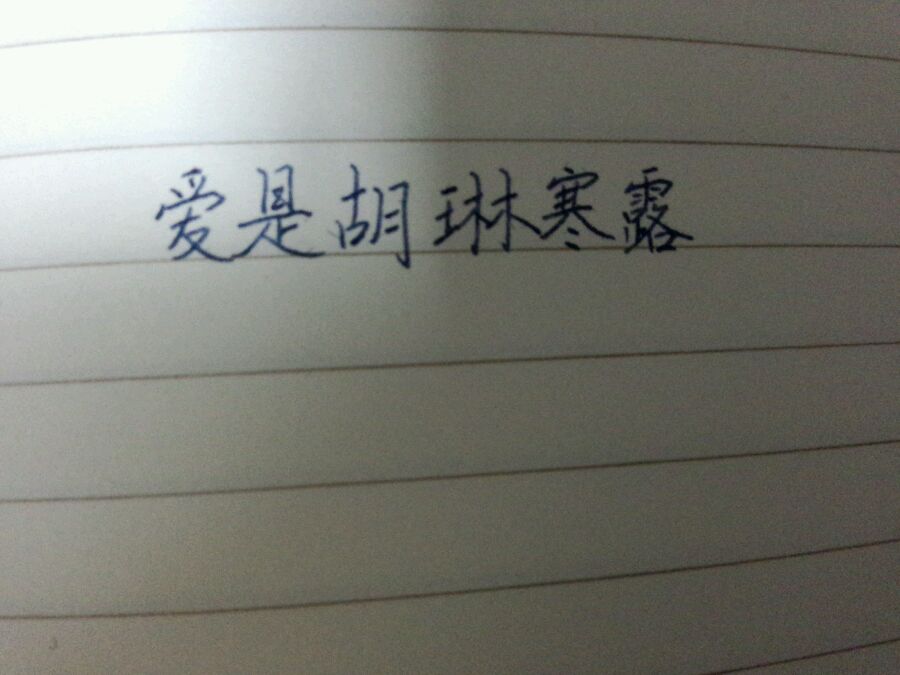 爱是胡琳寒露